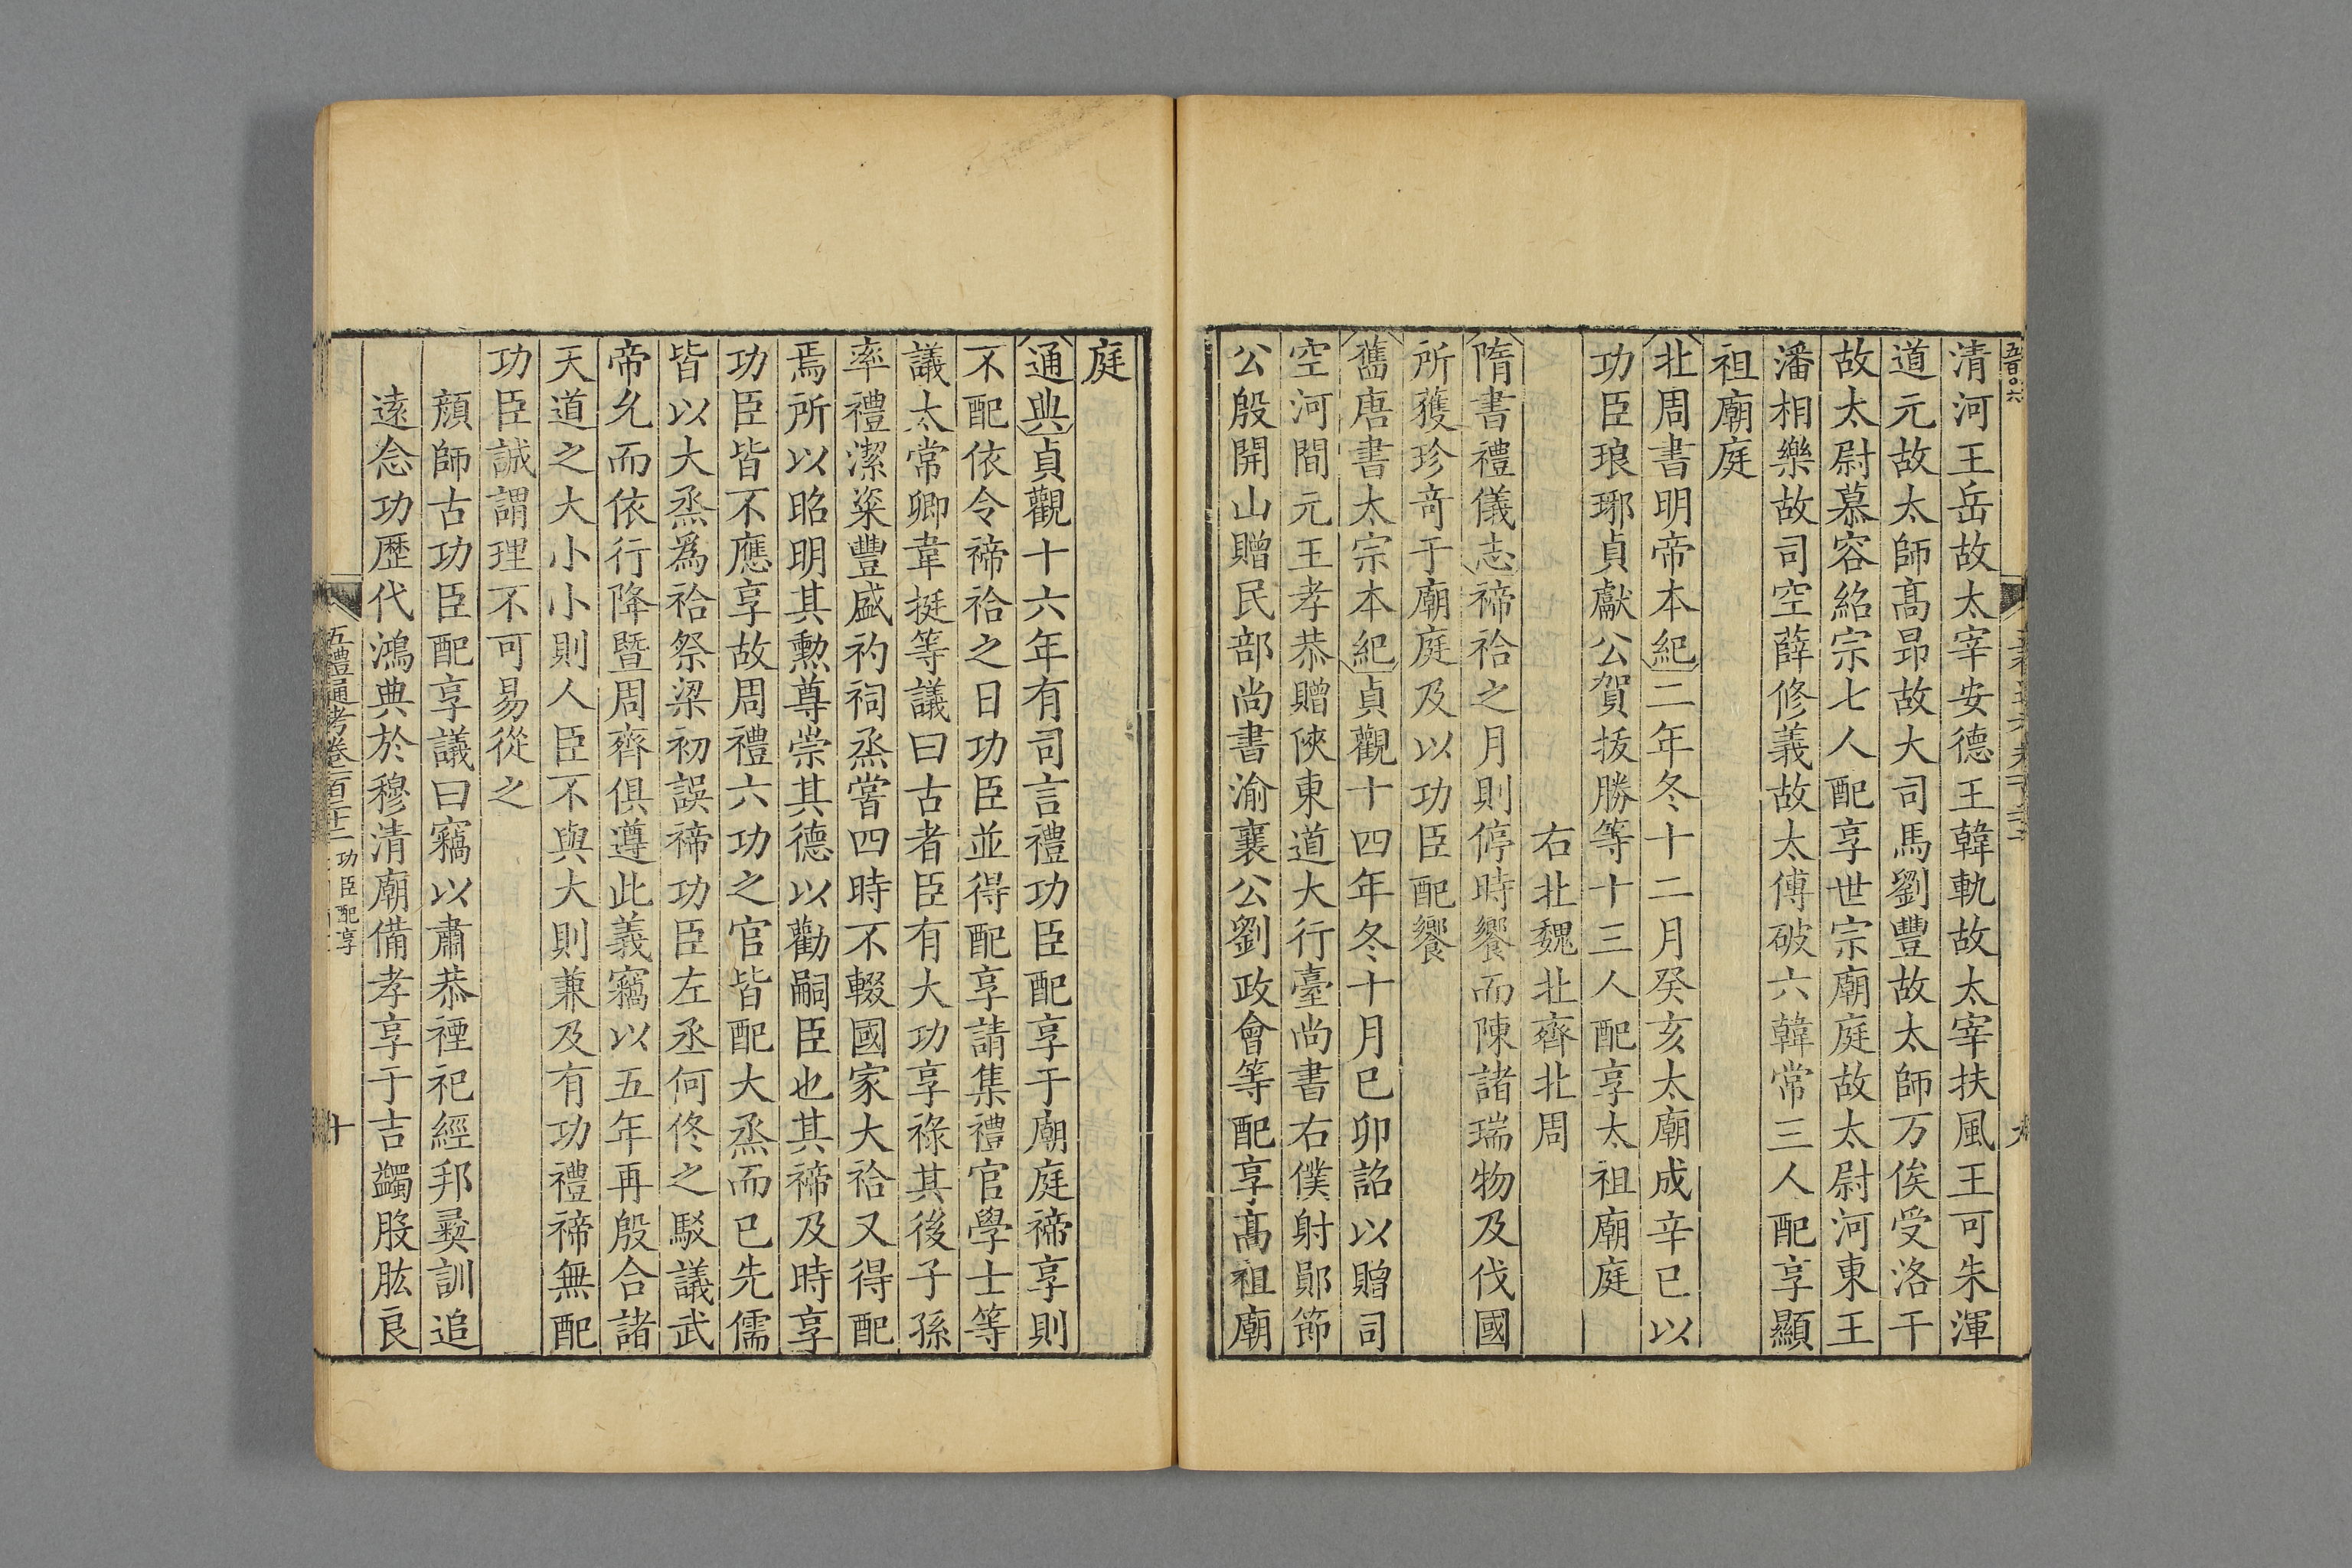 清河王岳故太宰安德王韓軌故太宰扶風王可朱渾
道元故太師高昻故大司馬劉豐故太師万俟受洛干
故太尉慕容紹宗七人配享世宗廟庭故太尉河東王
潘相樂故司空薛修義故太傅破六韓常三人配享顯
祖廟庭
北周書明帝本紀二年冬十二月癸亥太廟成辛巳以
功臣琅琊貞獻公賀拔勝等十三人配享太祖廟庭
右北魏北齊北周
隋書禮儀志禘祫之月則停時饗而陳諸瑞物及伐國
所獲珍奇于廟庭及以功臣配饗
舊唐書太宗本紀貞觀十四年冬十月己卯詔以贈司
空河間元王孝恭贈陝東道大行臺尚書右僕射鄖節
公殷開山贈民部尚書渝襄公劉政會等配享高祖廟
庭
通典貞觀十六年有司言禮功臣配享于廟庭禘享則
不配依令禘祫之日功臣並得配享請集禮官學士等
議太常卿韋挺等議曰古者臣有大功享祿其後子孫
率禮潔粢豐盛礿祠烝嘗四時不輟國家大祫又得配
焉所以昭明其勳尊崇其德以勸嗣臣也其禘及時享
功臣皆不應享故周禮六功之官皆配大烝而已先儒
皆以大烝爲祫祭梁初誤禘功臣左丞何佟之駁議武
帝允而依行降曁周齊俱遵此義竊以五年再殷合諸
天道之大小小則人臣不與大則兼及有功禮禘無配
功臣誠謂理不可易從之
顏師古功臣配享議曰竊以肅恭禋祀經邦彛訓追
遠念功歷代鴻典於穆清廟備孝享于吉蠲股肱良
五禮通考卷一百二十二 功臣配享
十